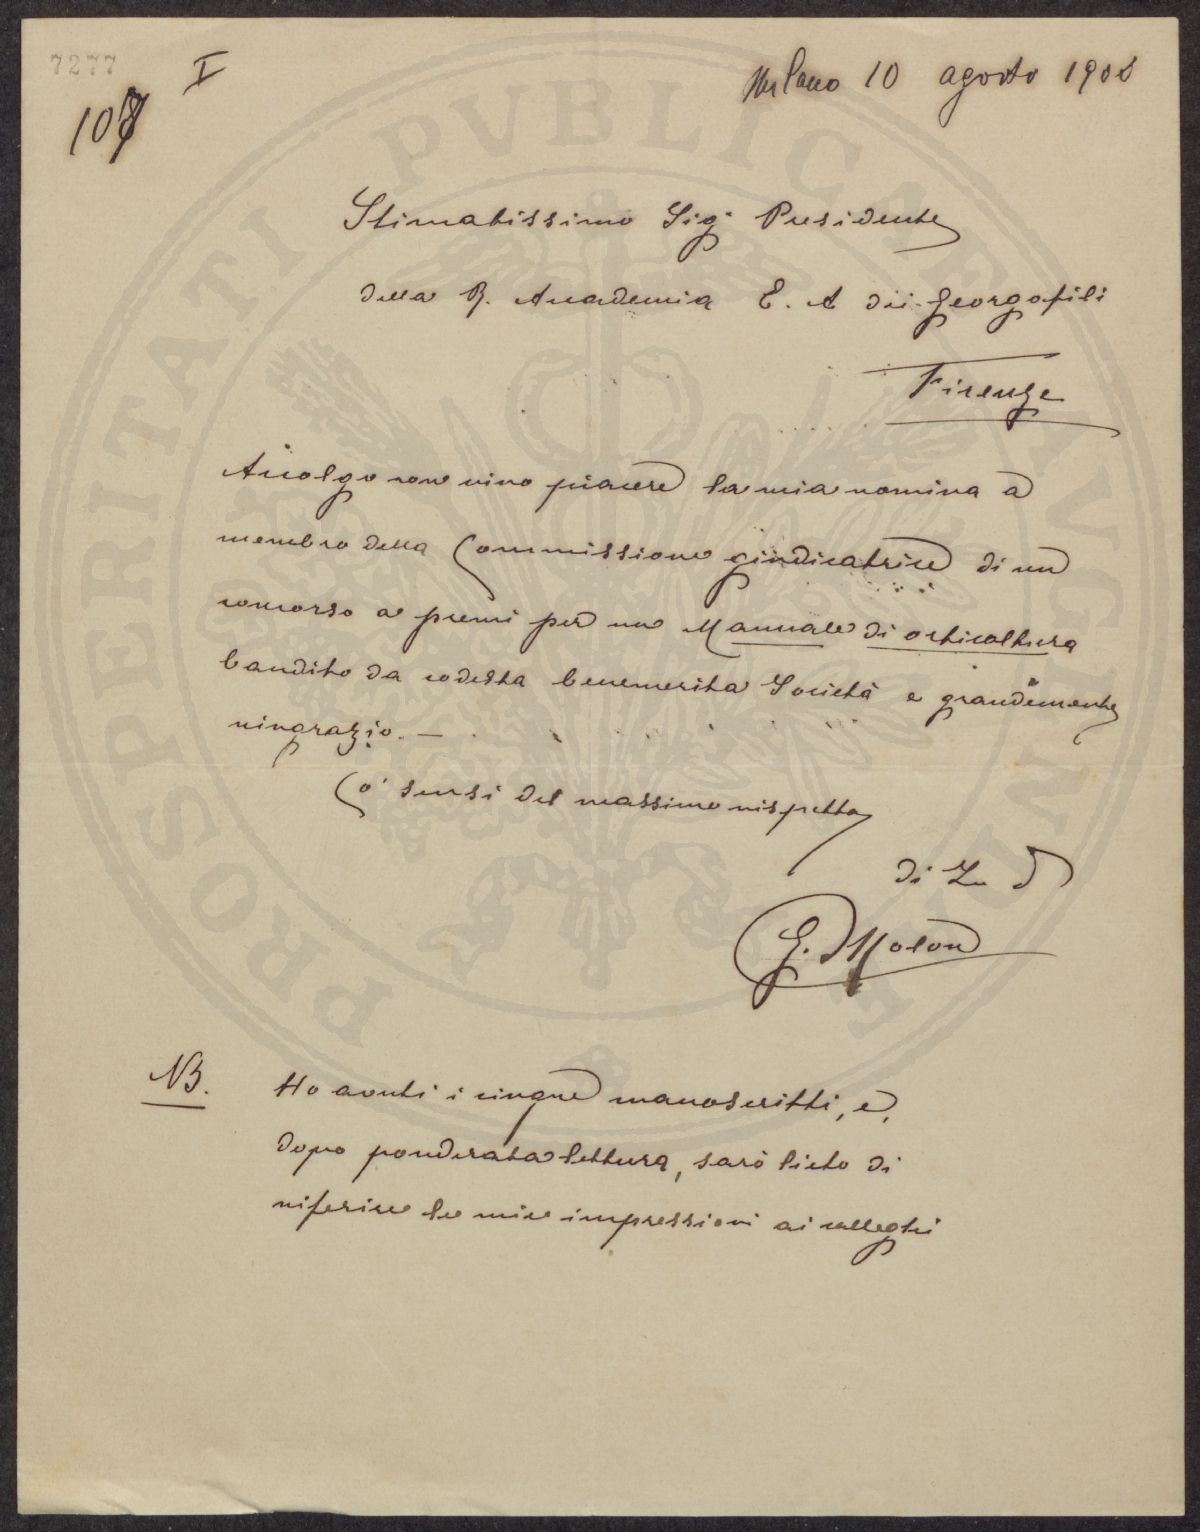 7277
I
107
Milano 10 agosto 1908
Stimatissimo Sig. Presidente
della R. Accademia E. A dei Georgofili
Firenze
Accolgo con vivo piacere la mia nomina a
membro della Commissione giudicatrice di un
concorso a premi per un Manuale di orticoltura
bandito da codesta benemerita Società e grandemente
ringrazio. —
Co' sensi del massimo rispetto
di Lu
G. Molon
NB. Ho avuti i cinque manoscritti, e,
dopo ponderata lettura, sarò lieto di
riferire le mie impressioni ai colleghi
PROSPERITATI PVBLICAE AVGENDAE